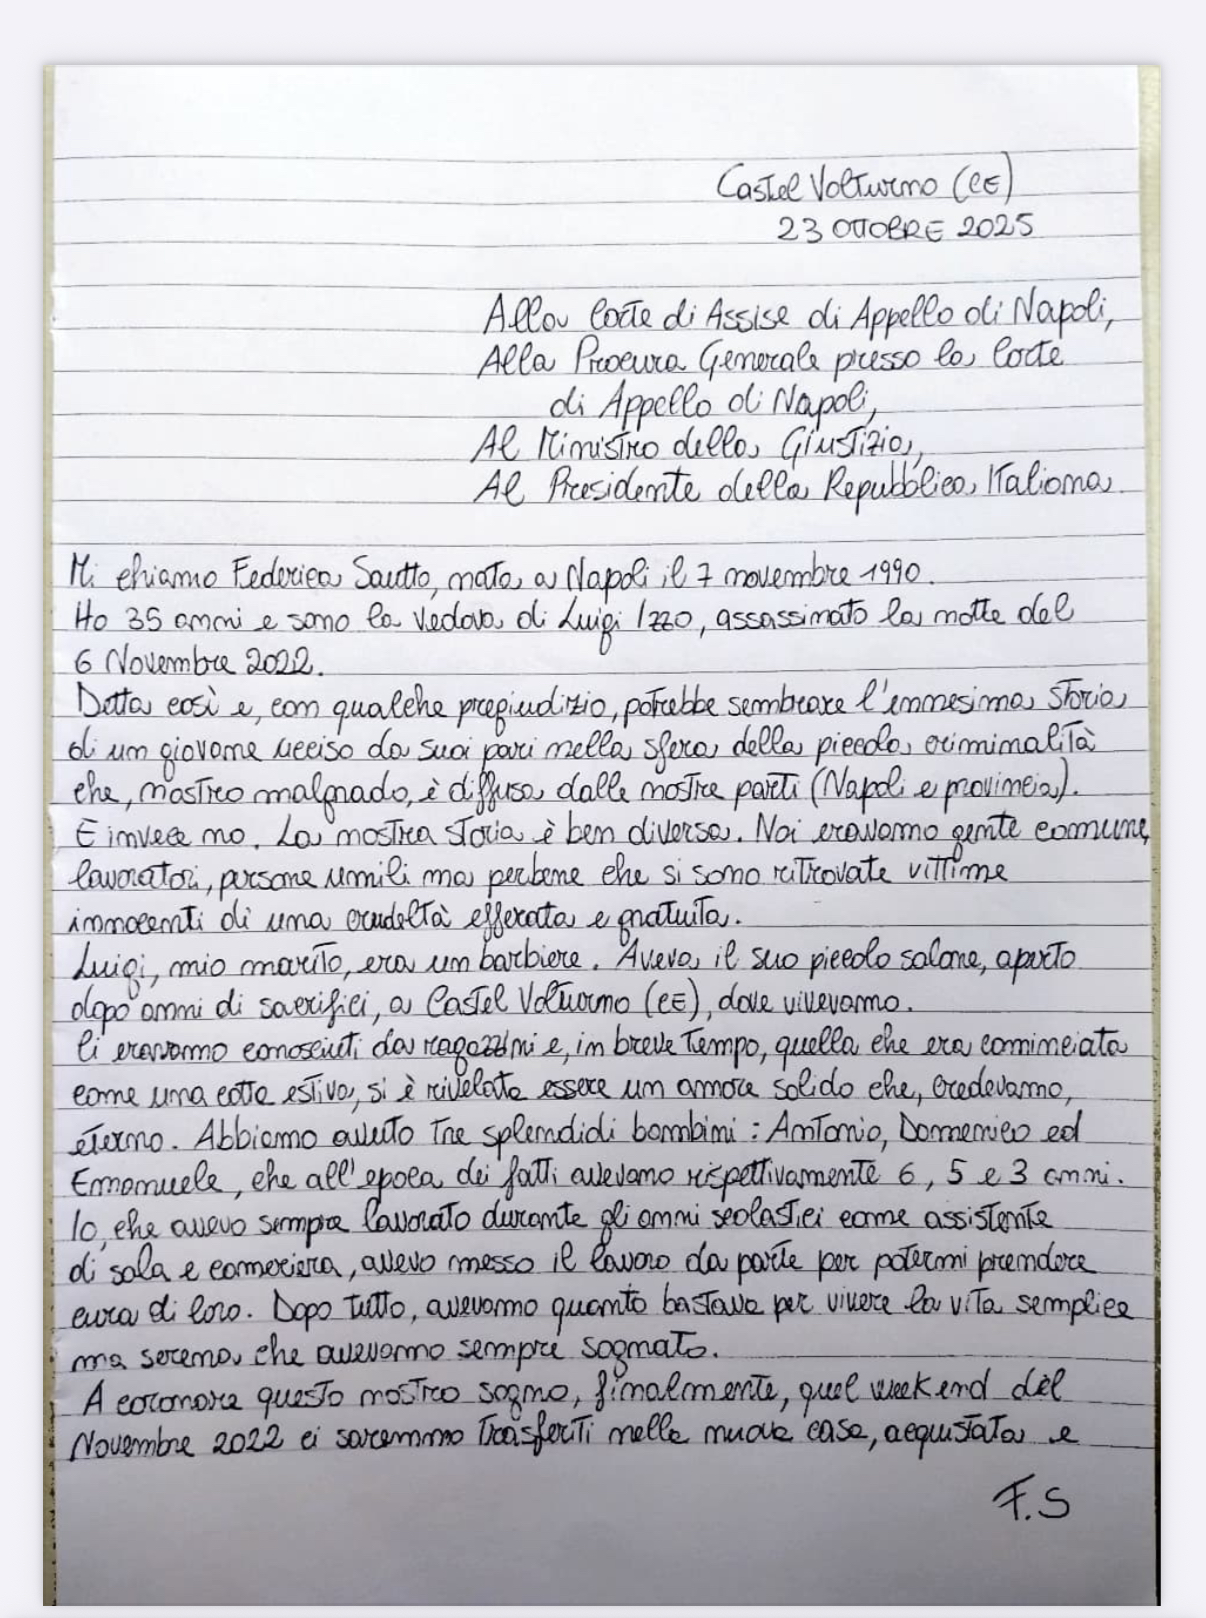 Castel Volturno (CE)
23 OTTOBRE 2025
Alla Corte di Assise di Appello di Napoli,
Alla Procura Generale presso la Corte
di Appello di Napoli,
Al Ministro della Giustizia,
Al Presidente della Repubblica Italiana
Mi chiamo Federica Sautto, nata a Napoli il 7 novembre 1990.
Ho 35 anni e sono la vedova di Luigi Izzo, assassinato la notte del
6 Novembre 2022.
Detta così e, con qualche pregiudizio, potrebbe sembrare l'ennesima storia
di un giovane ucciso da suoi pari nella sfera della piccola criminalità
che, nostro malgrado, è diffusa dalle nostre parti (Napoli e provincia).
E invece no. La nostra storia è ben diversa. Noi eravamo gente comune,
lavoratori, persone umili ma perbene che si sono ritrovate vittime
innocenti di una crudeltà efferata e gratuita.
Luigi, mio marito, era un barbiere. Aveva il suo piccolo salone, aperto
dopo anni di sacrifici, a Castel Volturno (CE), dove vivevamo.
Ci eravamo conosciuti da ragazzini e, in breve tempo, quella che era cominciata
come una cotta estiva, si è rivelata essere un amore solido che, credevamo,
eterno. Abbiamo avuto tre splendidi bambini: Antonio, Domenico ed
Emanuele, che all'epoca dei fatti avevano rispettivamente 6, 5 e 3 anni.
Io, che avevo sempre lavorato durante gli anni scolastici come assistente
di sala e cameriera, avevo messo il lavoro da parte per potermi prendere
cura di loro. Dopo tutto, avevamo quanto bastava per vivere la vita semplice
ma serena che avevamo sempre sognato.
A coronare questo nostro sogno, finalmente, quel weekend del
Novembre 2022 ci saremmo trasferiti nella nuova casa, acquistata e
F.S